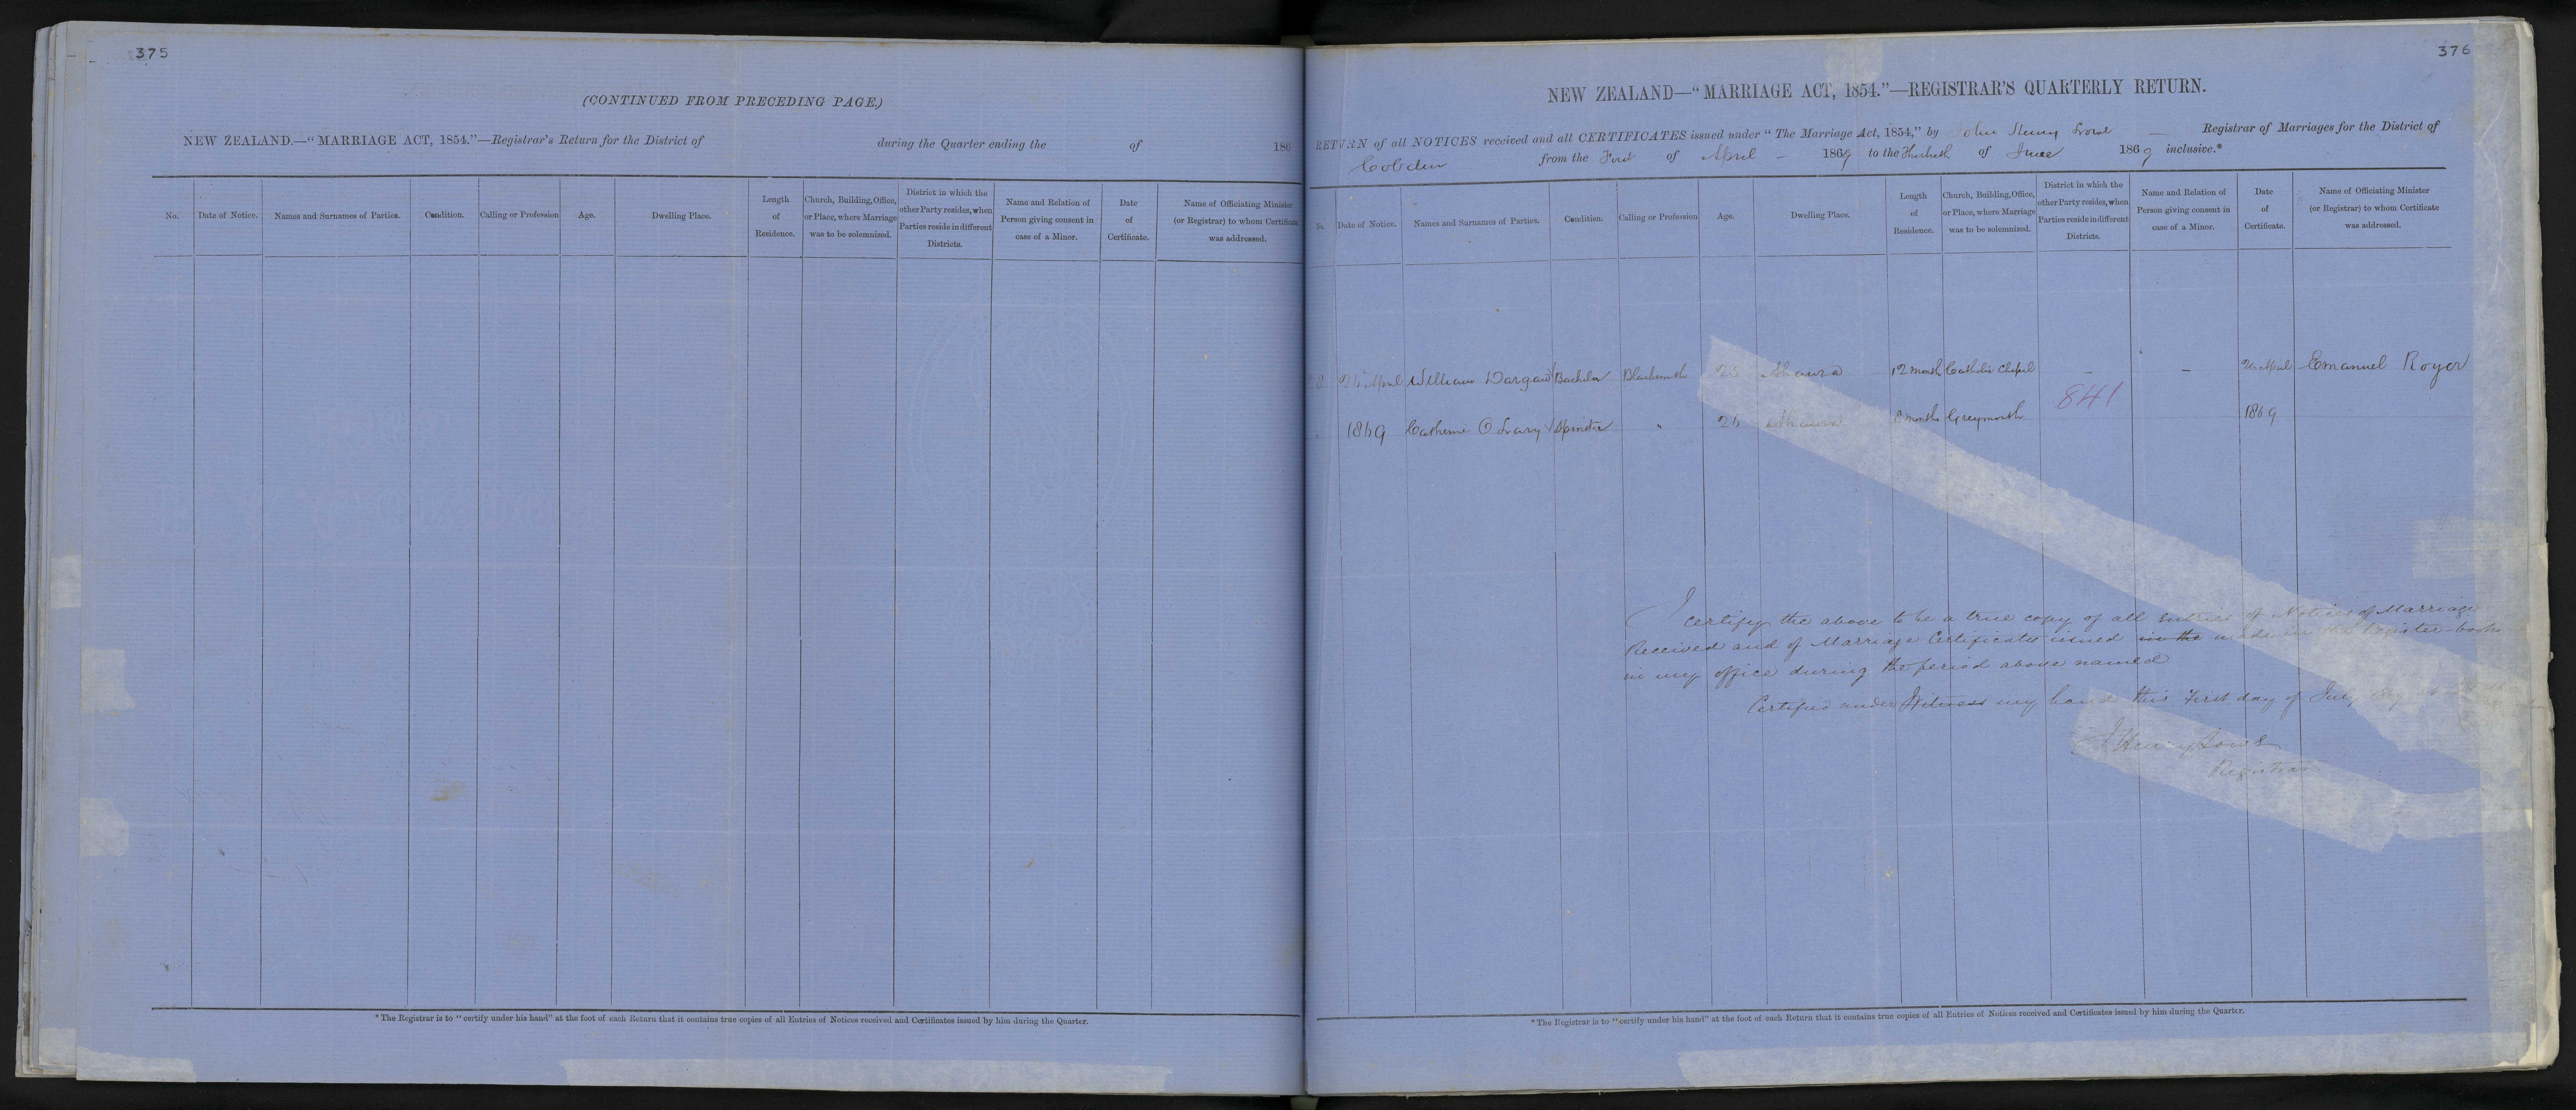 375
(CONTINUED FROM PRECEDING PAGE.)
NEW ZEALAND.—"MARRIAGE ACT, 1854."—Registrar's Return for the District of during the Quarter ending the of 186
No. Date of Notice. Names and Surnames of Parties. Condition. Calling or Profession Age. Dwelling Place. Length of Residence. Church, Building, Office, or Place, where Marriage was to be solemnized. District in which the other Party resides, when Parties reside in different Districts. Name and Relation of Person giving consent in case of a Minor. Date of Certificate. Name of Officiating Minister (or Registrar) to whom Certificate was addressed.
*The Registrar is to "certify under his hand" at the foot of each Return that it contains true copies of all Entries of Notices received and Certificates issued by him during the Quarter.
376
NEW ZEALAND—"MARRIAGE ACT, 1854."—REGISTRAR'S QUARTERLY RETURN.
RETURN of all NOTICES received and all CERTIFICATES issued under "The Marriage Act, 1854," by John Henry Lowe Registrar of Marriages for the District of
Cobden from the First of April 1869 to the Thirtieth of June 1869 inclusive.*
No. Date of Notice. Names and Surnames of Parties. Condition. Calling or Profession Age. Dwelling Place. Length of Residence. Church, Building, Office, or Place, where Marriage was to be solemnized. District in which the other Party resides, when Parties reside in different Districts. Name and Relation of Person giving consent in case of a Minor. Date of Certificate. Name of Officiating Minister (or Registrar) to whom Certificate was addressed.
April William Dargan Bachelor Blacksmith 25 Ahaura 12 month Catholic Chapel – – April Emanuel Royer
841
1869 Catherine O Leary Spinster " Ahaura 8 months Greymouth 1869
I certify the above to be a true copy of all entries of Notices of Marriage
Received and of Marriage Certificates issued in the made in the Register book
in my office during the period above named
Certified under Witness my hand this First day of July
J Henry Lowe
Registrar
*The Registrar is to "certify under his hand" at the foot of each Return that it contains true copies of all Entries of Notices received and Certificates issued by him during the Quarter.